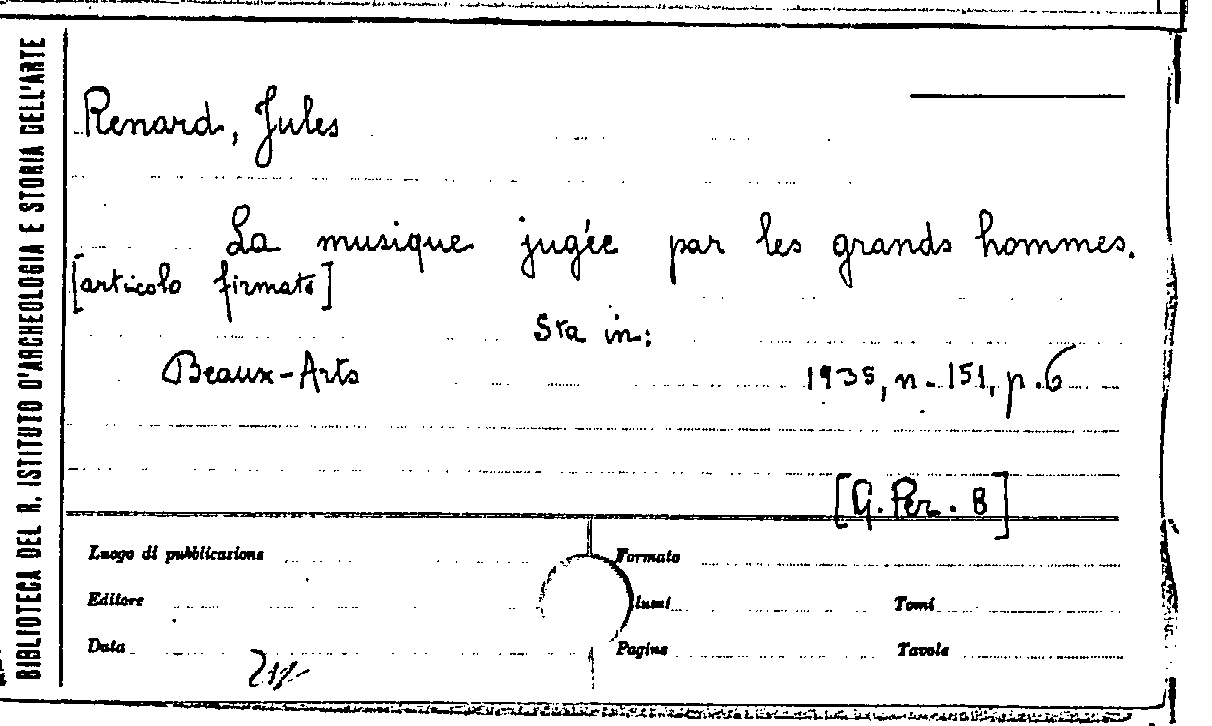 BIBLIOTECA DEL R. ISTITUTO D'ARCHEOLOGIA E STORIA DELL'ARTE
Renard, Jules
La musique jugée par les grands hommes.
[articolo firmato]
Sta in:
Beaux-Arts 1935, n. 151, p. 6
[G. Per. 8]
Luogo di pubblicazione Formato
Editore lumi Tomi
Data Pagine Tavole